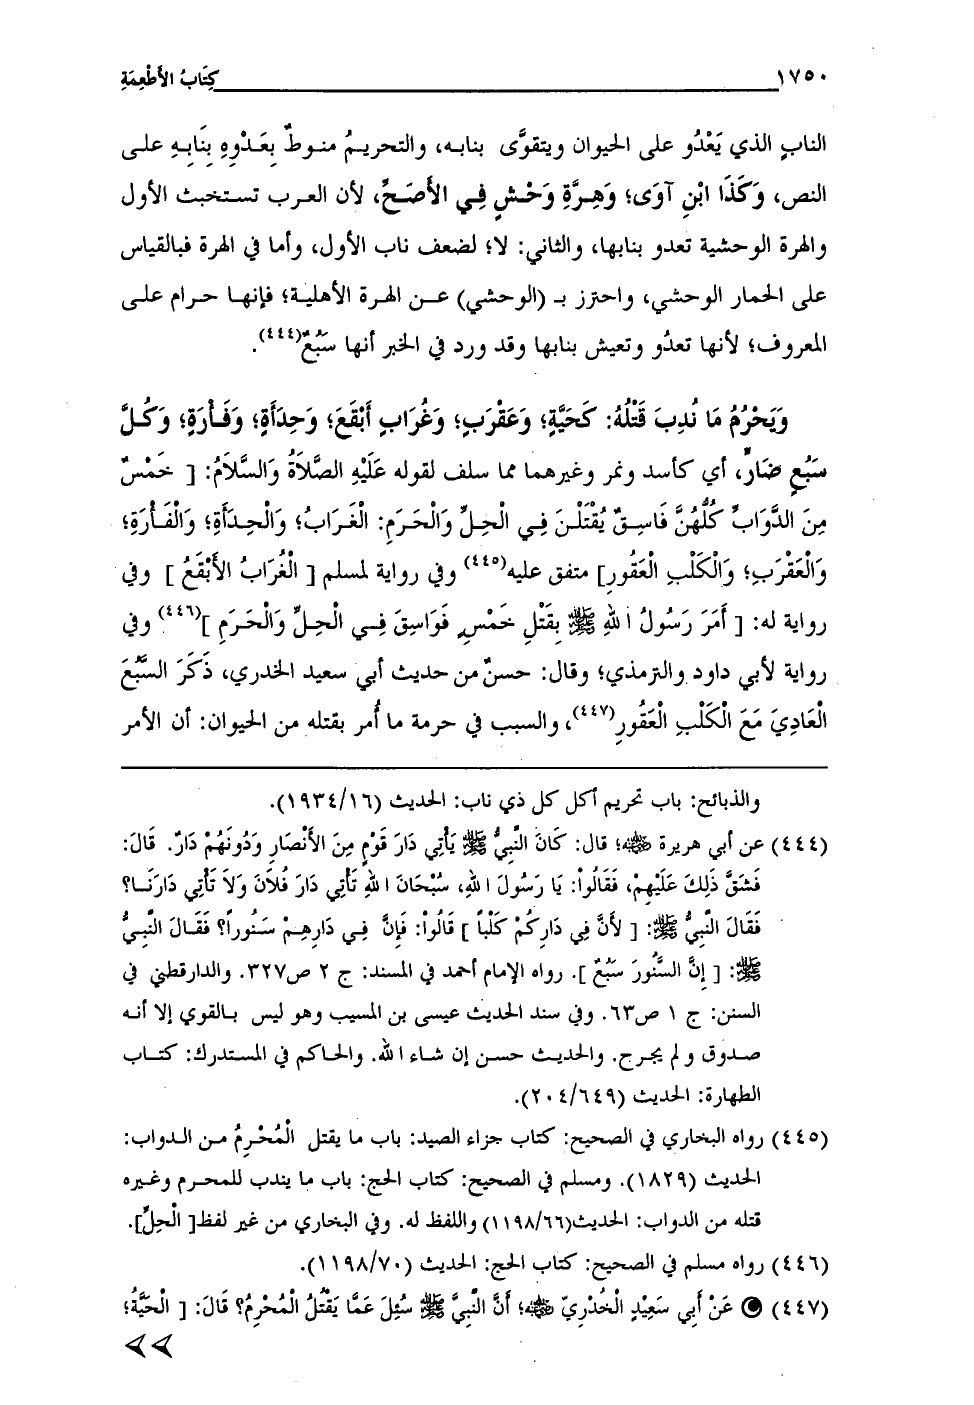 ١٧٥٠ كِتَابُ الأَطْعِمَةِ
الناب الذي يَعْدُو على الحيوان ويتقوَّى بنابه، والتحريمُ منوطٌ بِعَدْوِهِ بِنَابِهِ على
النص، وَكَذَا ابْنِ آوَى؛ وَهِرَّةِ وَحْشٍ فِي الأَصَحِّ، لأن العرب تستخبث الأول
والهرة الوحشية تعدو بنابها، والثاني: لا؛ لضعف ناب الأول، وأما في الهرة فبالقياس
على الحمار الوحشي، واحترز بـ (الوحشي) عن الهرة الأهلية؛ فإنها حرام على
المعروف؛ لأنها تعدُو وتعيش بنابها وقد ورد في الخبر أنها سَبُعٌ(٤٤٤).
وَيَحْرُمُ مَا نُدِبَ قَتْلُهُ: كَحَيَّةٍ؛ وَعَقْرَبٍ؛ وَغُرَابٍ أَبْقَعَ؛ وَحِدَأَةٍ؛ وَفَأْرَةٍ؛ وَكُلُّ
سَبُعٍ ضَارٍّ، أي كأسد ونمر وغيرهما مما سلف لقوله عَلَيْهِ الصَّلاَةُ وَالسَّلاَمُ: [ خَمْسٌ
مِنَ الدَّوَابِّ كُلُّهُنَّ فَاسِقٌ يُقْتَلْنَ فِي الْحِلِّ وَالْحَرَمِ: الْغَرَابُ؛ وَالْحِدَأَةِ؛ وَالْفَأْرَةِ؛
وَالْعَقْرَبِ؛ وَالْكَلْبِ الْعَقُورِ] متفق عليه(٤٤٥) وفي رواية لمسلم [ الْغُرَابُ الأَبْقَعُ ] وفي
رواية له: [ أَمَرَ رَسُولُ اللهِ ﷺ بِقَتْلِ خَمْسِ فَوَاسِقَ فِي الْحِلِّ وَالْحَرَمِ ](٤٤٦) وفي
رواية لأبي داود والترمذي؛ وقال: حسنٌ من حديث أبي سعيد الخدري، ذَكَرَ السَّبُعَ
الْعَادِيَ مَعَ الْكَلْبِ الْعَقُورِ(٤٤٧)، والسبب في حرمة ما أُمر بقتله من الحيوان: أن الأمر
والذبائح: باب تحريم أكل كل ذي ناب: الحديث (١٩٣٤/١٦).
(٤٤٤) عن أبي هريرة ﷺ؛ قال: كَانَ النَّبِيُّ ﷺ يَأْتِي دَارَ قَوْمٍ مِنَ الأَنْصَارِ وَدُونَهُمْ دَارٌ. قَالَ:
فَشَقَّ ذَلِكَ عَلَيْهِمْ، فَقَالُواْ: يَا رَسُولَ اللهِ، سُبْحَانَ اللهِ تَأْتِي دَارَ فُلاَنٍ وَلاَ تَأْتِي دَارَنَا؟
فَقَالَ النَّبِيُّ ﷺ: [ لأَنَّ فِي دَارِكُمْ كَلْباً ] قَالُواْ: فَإِنَّ فِي دَارِهِمْ سَنُوراً؟ فَقَالَ النَّبِيُّ
ﷺ: [ إِنَّ السَّنُّورَ سَبُعٌ ]. رواه الإمام أحمد في المسند: ج ٢ ص٣٢٧. والدارقطني في
السنن: ج ١ ص٦٣. وفي سند الحديث عيسى بن المسيب وهو ليس بالقوي إلا أنه
صدوق ولم يجرح. والحديث حسن إن شاء الله. والحاكم في المستدرك: كتاب
الطهارة: الحديث (٢٠٤/٦٤٩).
(٤٤٥) رواه البخاري في الصحيح: كتاب جزاء الصيد: باب ما يقتل الْمُحْرِمُ من الدواب:
الحديث (١٨٢٩). ومسلم في الصحيح: كتاب الحج: باب ما يندب للمحرم وغيره
قتله من الدواب: الحديث(١١٩٨/٦٦) واللفظ له. وفي البخاري من غير لفظ[ الْحِلِّ].
(٤٤٦) رواه مسلم في الصحيح: كتاب الحج: الحديث (١١٩٨/٧٠).
(٤٤٧) عَنْ أَبِي سَعِيْدٍ الْخُدْرِيِّ ﷺ؛ أَنَّ النَّبِيَّ ﷺ سُئِلَ عَمَّا يَقْتُلُ الْمُحْرِمُ؟ قَالَ: [ الْحَيَّةُ؛